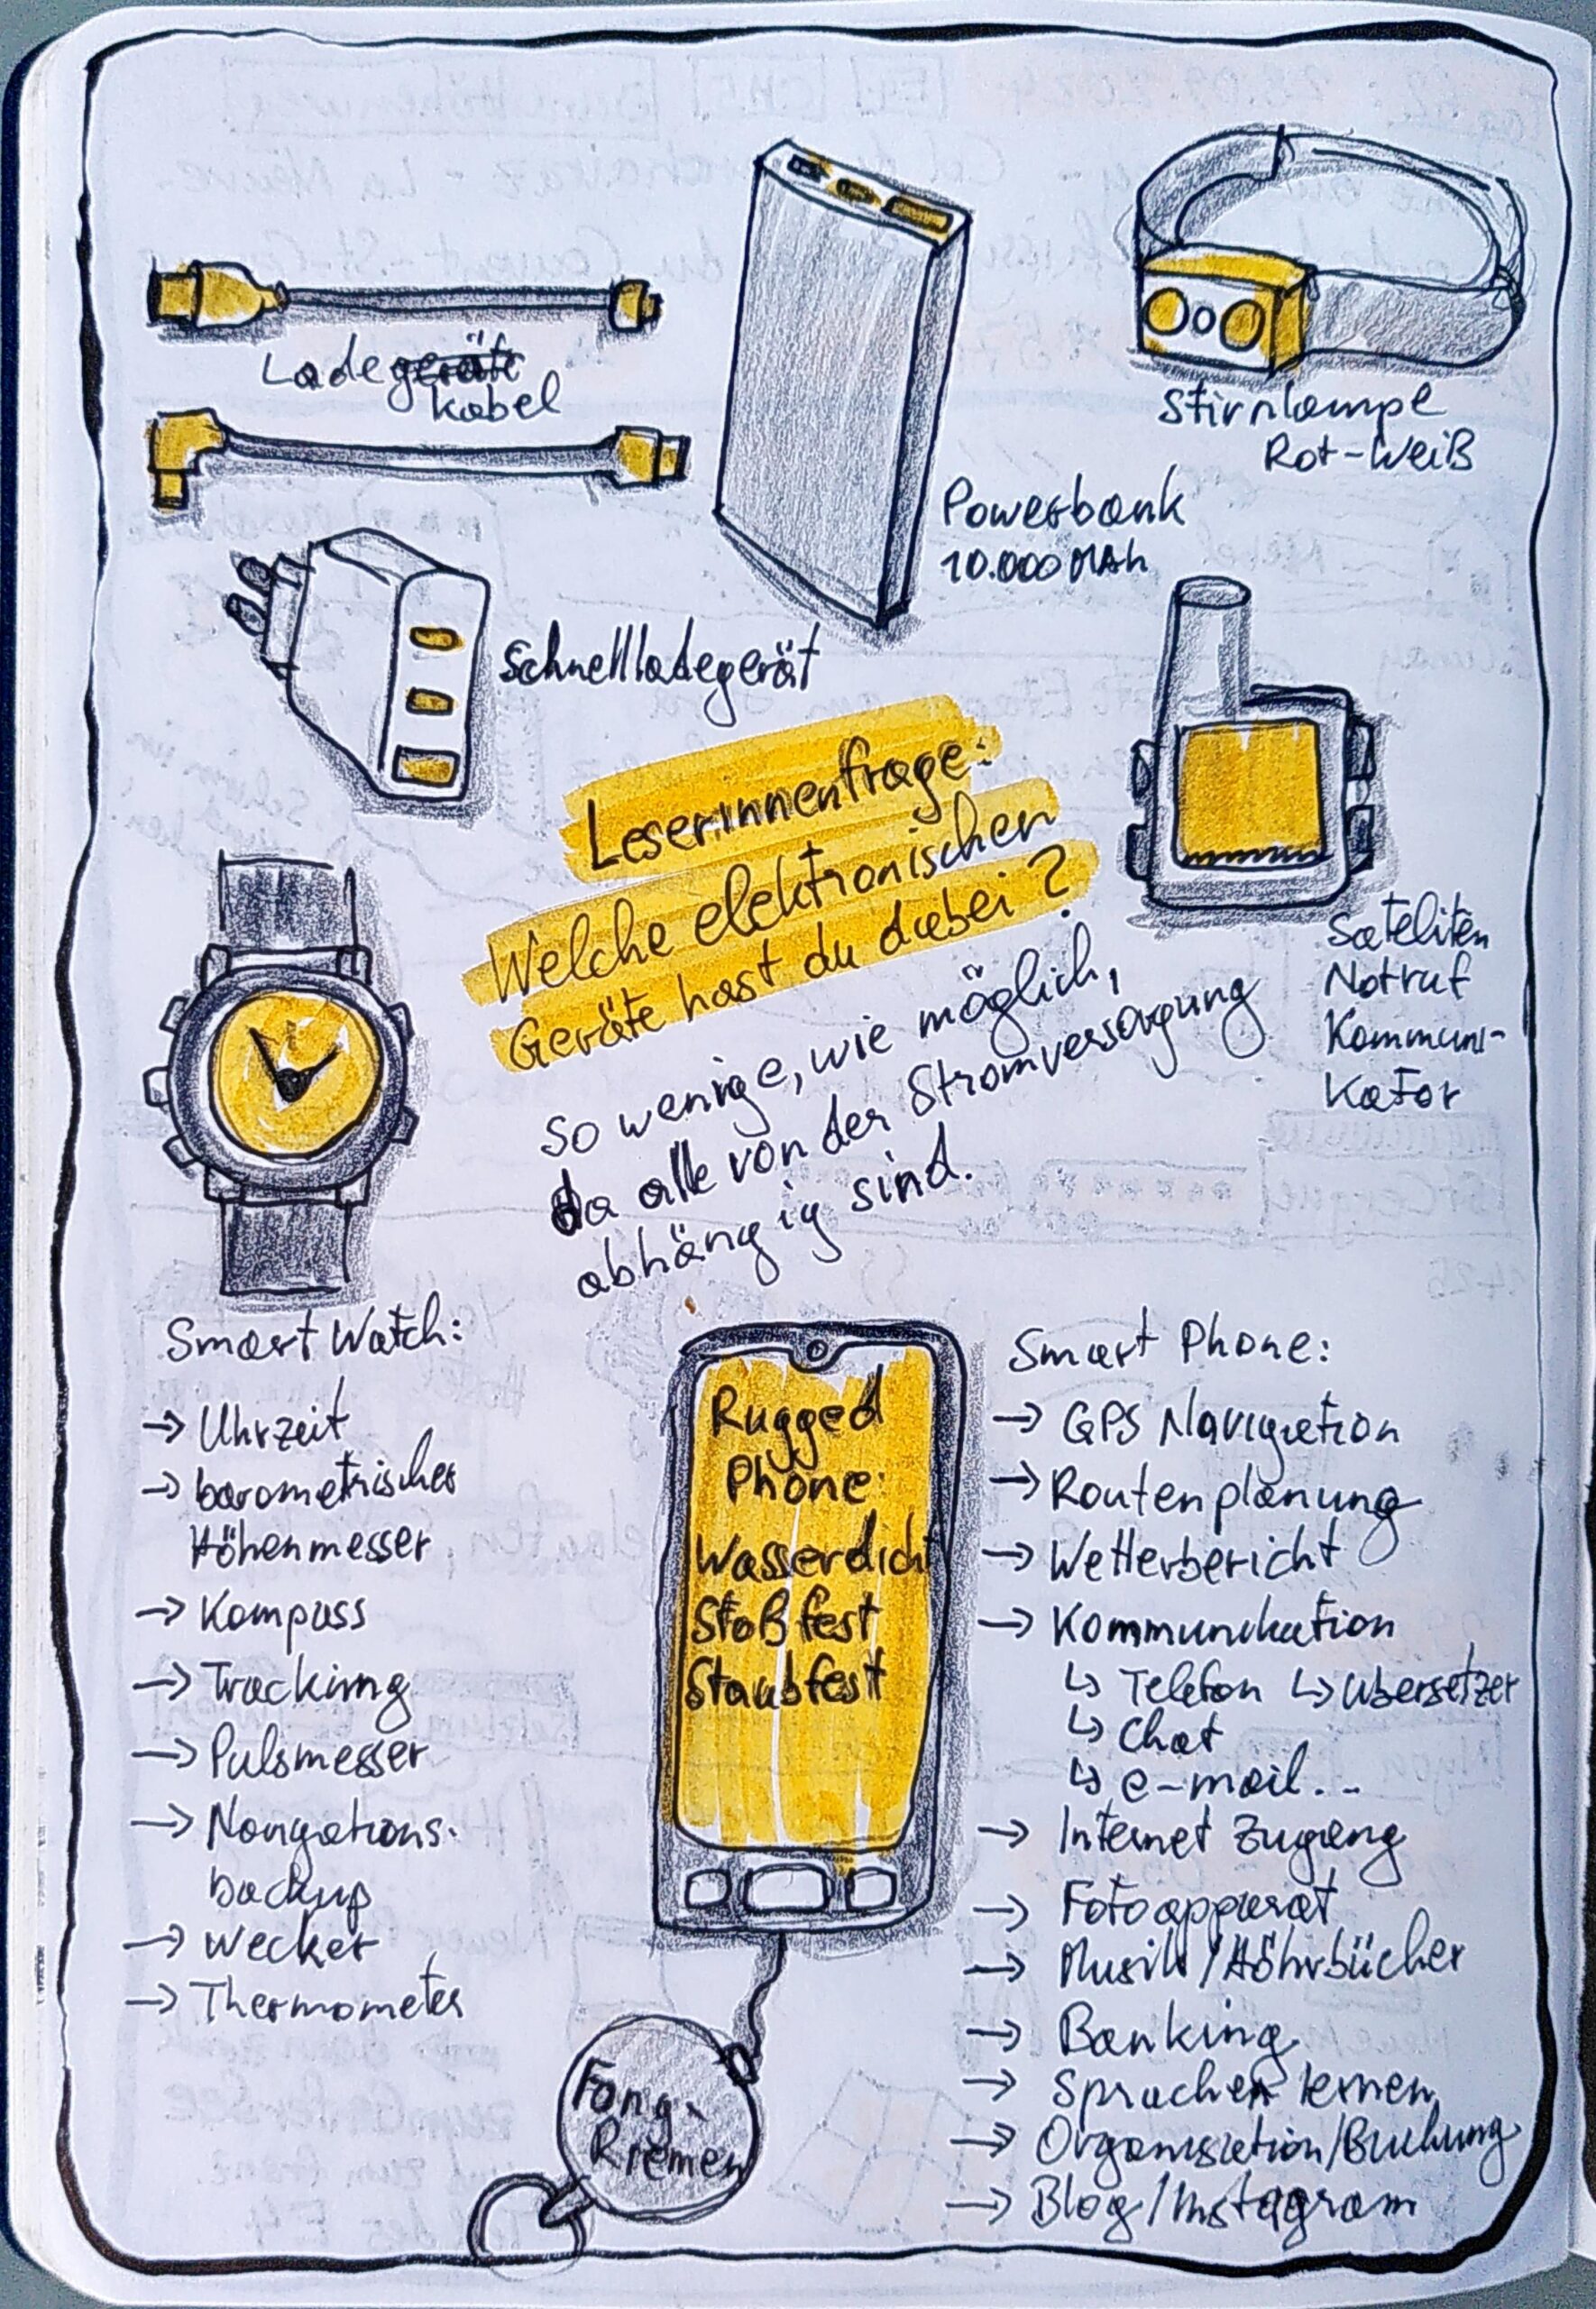 Ladegeräte
kabel
Stirnlampe
Rot-Weiß
Powerbank
10.000 MAh
Schnellladegerät
Leserinnenfrage:
Welche elektronischen
Geräte hast du dabei?
So wenige, wie möglich,
da alle von der Stromversorgung
abhängig sind.
Sateliten
Notruf
Kommuni-
kator
Smart Watch:
→ Uhrzeit
→ barometrischer
Höhenmesser
→ Kompass
→ Tracking
→ Pulsmesser
→ Navigations-
backup
→ Wecker
→ Thermometer
Rugged
Phone:
Wasserdicht
Stoßfest
Staubfest
Fang-
Riemen
Smart Phone:
→ GPS Navigation
→ Routenplanung
→ Wetterbericht
→ Kommunikation
↳ Telefon ↳ Übersetzer
↳ Chat
↳ e-mail...
→ Internet Zugang
→ Fotoapparat
→ Musik/Höhrbücher
→ Banking
→ Sprachen lernen
→ Organisation/Buchung
→ Blog/Instagram